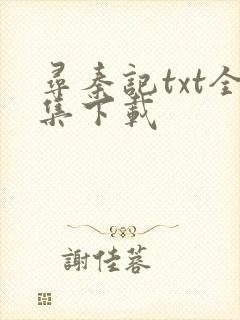 尋秦記txt全
集下載
謝佳蓉